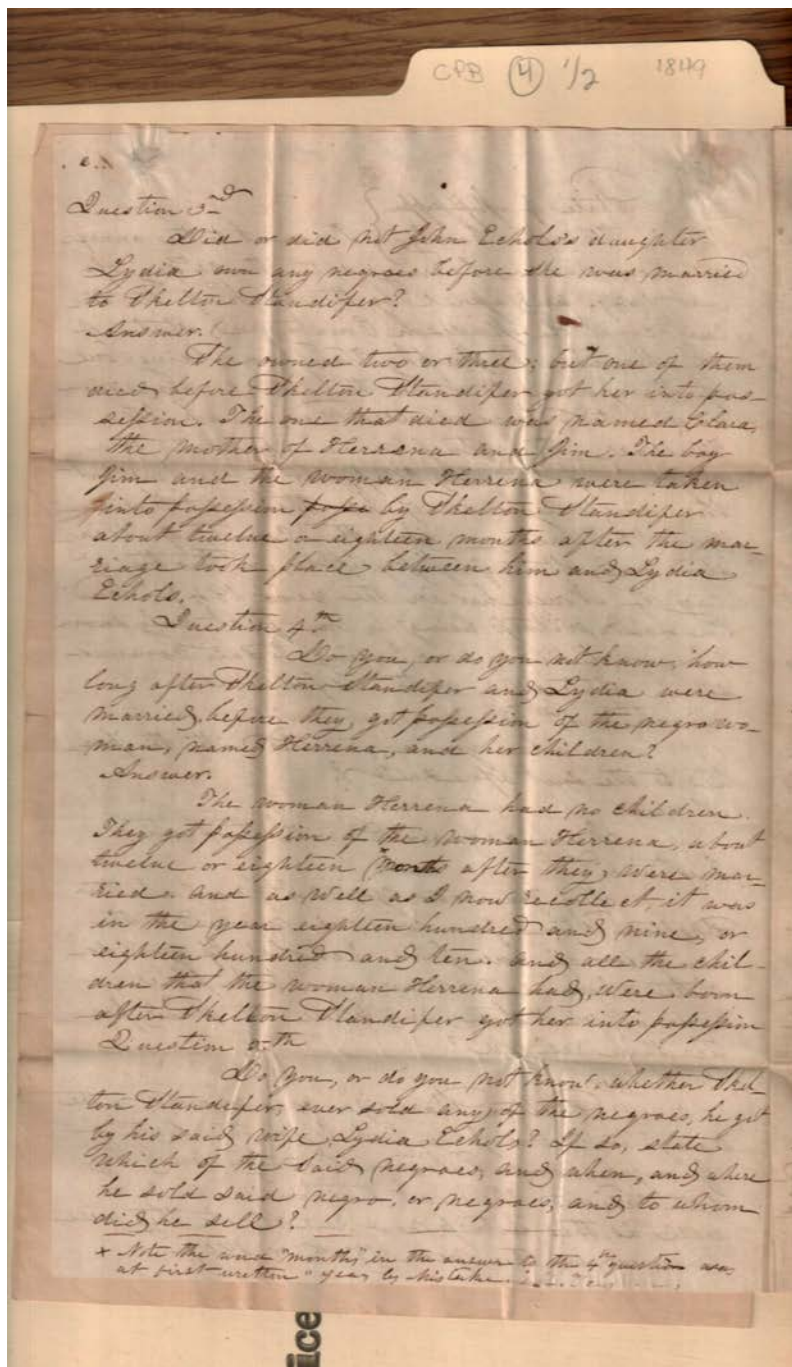 CPB 4 1/2 1849
Question 3rd
Did or did not John Echols's daughter
Lydia own any negroes before she was married
to Skelton Standifer?
Answer.
She owned two or three; but one of them
died before Skelton Standifer got her into pos-
session. The one that died was named Clara,
the mother of Herrena and Jim. The boy
Jim and the woman Herrena were taken
into possession poss by Skelton Standifer
about twelve or eighteen months after the mar-
riage took place between him and Lydia
Echols.
Question 4th
Do you, or do you not know, how
long after Skelton Standifer and Lydia were
married, before they, got possession of the negro wo-
man, named Herrena, and her children?
Answer.
The woman Herrena had no children.
They got possession of the woman Herrena, about
twelve or eighteen months after they, were mar-
ried. And as well as I now recollect it was
in the year eighteen hundred and nine, or
eighteen hundred and ten. And all the chil-
dren that the woman Herrena had, were born
after Skelton Standifer got her into possession
Question 5th
Do you, or do you not know, whether Skel-
ton Standifer, ever sold any of the negroes, he got
by his said wife, Lydia Echols? If so, state
which of the said negroes, and when, and where
he sold said negro, or negroes, and to whom
did he sell?
x Note the word "months," in the answer to the 4th question was,
at first written "year, by mistake.
ice